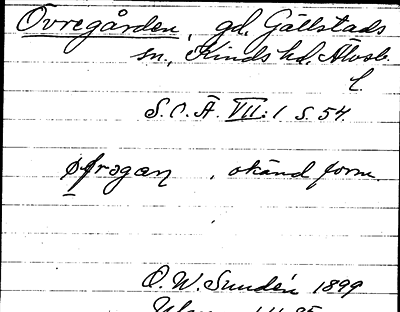 Övregården, gd. Gällstads
sn., Kinds hd. Älvsb.
l.
S.O.Ä. VII:1 s. 54.
øfragaŋ, okänd form.
O. W. Sundén 1899